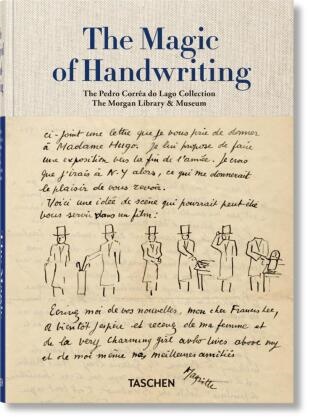 The Magic
of Handwriting
The Pedro Corrêa do Lago Collection
The Morgan Library & Museum
ci-joint une lettre que je vous prie de donner
à Madame Hugo. Je lui propose de faire
une exposition vers la fin de l'année. Je crois
que j'irais à N.Y alors, ce qui me donnerait
le plaisir de vous revoir.
Voici une idée de scène qui pourrait peut-être
vous servir dans un film:
Ecrivez moi de vos nouvelles, mon cher Francis Lee,
A bientôt j'espère et recevez de ma femme et
de la very charming girl who lives above my
et de moi même nos meilleures amitiés
Magritte
TASCHEN